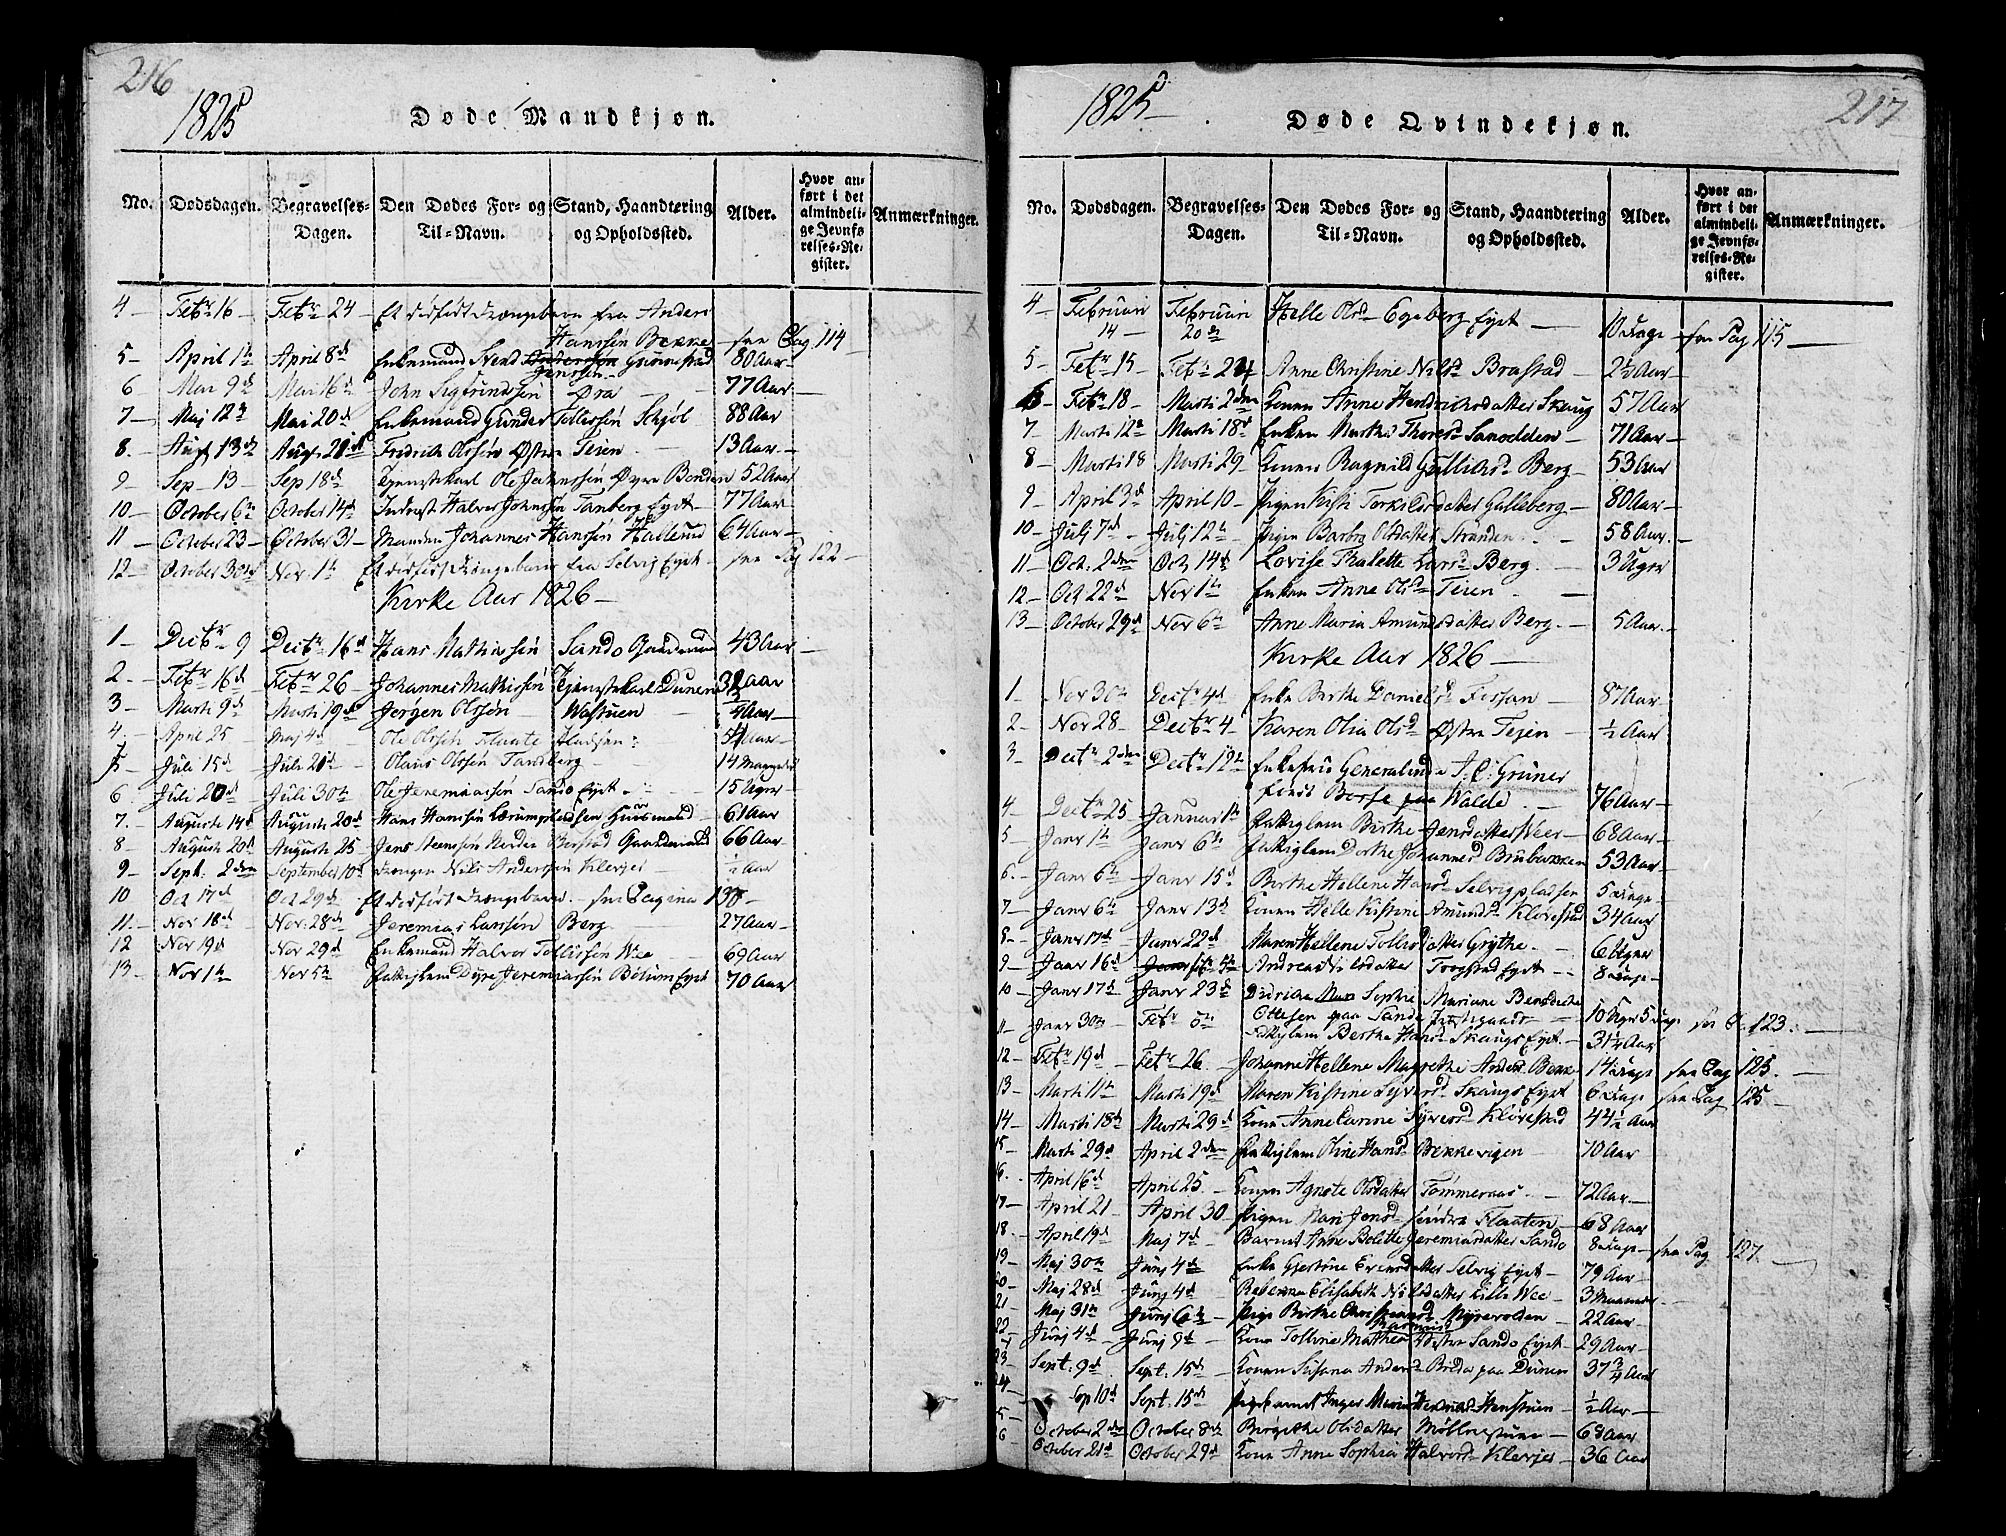 216
1825
Døde Mandkjøn.
No. Dødsdagen. Begravelses-Dagen. Den Dødes For- og Til-Navn. Stand, Haandtering og Opholdssted. Alder. Hvor anført i det almindelige Jevnførelses-Register. Anmærkninger.
4 — Febr 16 — Febr 24 — Et dødfødt Drengebarn fra Anders
Hanssen Bekke — see Pag 114
5 — April 1te April 8d Enkemand Svend Gunnestad 80 Aar —
Jenssen
6 Mai 9d Mai 16d John Sigbrindsen Øra 77 Aar —
7 — Maj 12te Mai 20d Enkemand Gunder Tollefsen Skjøl 88 Aar
8. Aug 13d Aug. 21d Fredrich Olssen Østre Teien 13 Aar —
9 — Sep 13 — Sep 18d Tjenestekarl Ole Jahnssen Øvre Bonden 52 Aar
10 — October 6te October 14d Inderst Halvor Johnsen Tanberg Eyet — 77 Aar
11 — October 23 — October 31 — Manden Johannes Hanssen Hallerud 64 Aar —
12 — October 30d Nov. 1te Et dødfødt Drengebarn fra Selvig Eyet — see Pag 122 —
Kirke Aar 1826 —
1 — Decbr 9 Decbr 16d Hans Mathissen Sando Gaardmand 43 Aar —
2 — Febr 16d Febr 26 — Johannes Mathissen Tjenestekarl Dunen 32 Aar
3 — Marti 9d Marti 19d Jørgen Olssen Wastuen ¼ Aar —
4. April 25 Maj 4d Ole Olssen Flaate Pladsen 54 Aar —
5 — Juli 15d Juli 21d Olaus Olssen Tandberg — 14 Maaneder
6. Juli 20d Juli 30te Ole Jeremiassen Sando Eyet — 15 Uger
7. Augusti 14d Augusti 20d Hans Hanssen Huusmand 61 Aar
8 — Augusti 20d Augusti 25 Jens Steenssen Nordre Berstad Gaardmand 66 Aar
9 — Sept. 2den September 10d Drengen Nils Anderssen Klevjer — ½ Aar
10 Oct 17d Oct 29d Et dødfødt Drengebarn — see Pagina 130
11 — Nov 18d Nov. 28d Jeremias Larssen Berg 27 Aar —
12 Nov 19d Nov 29d Enkemand Halvor Tollefsen Wee 69 Aar
13 — Nov 1te Nov 5te Fattiglem Dyre Jeremiassen Bølum Eyet 70 Aar
217
1825 —
Døde Qvindekjøn.
No. Dødsdagen. Begravelses-Dagen. Den Dødes For- og Til-Navn. Stand, Haandtering og Opholdssted. Alder. Hvor anført i det almindelige Jevnførelses-Register. Anmærkninger.
4 — Februari 14 — Februari 20de Helle Olsd Egeberg Eyet — 10 Dage — see Pag 115 —
5 — Febr 15 Febr 24 Anne Christine Nilsd Brastad — 2½ Aar —
6 — Febr 18 Marti 2den Konen Anne Hendrichsdatter Skaug 57 Aar
7 Marti 12te Marti 18d Enken Marthe Thoresd Sanodden — 71 Aar —
8 — Marti 18 Marti 29 Konen Ragnild Gullichsd Berg — 53 Aar
9 — April 3d April 10 — Pigen Kisti Torkildsdatter Galleberg — 80 Aar —
10 — Julj 7d Julj 12te Pigen Barbro Olsdatter Stranden 58 Aar —
11 — Oct. 2den Oct. 14d Lovise Thalette Larsd Berg — 3 Uger
12 — Oct 22d Nov 1te Enken Anne Olsd Teien —
13 — October 29d Nov 6te Anne Maria Amundsdatter Berg — 5 Aar —
Kirke Aar 1826 —
1. Nov 30te Decbr 4d Enke Berthe Daniels Fossan 87 Aar —
2 — Nov 28 — Decbr 4 — Karen Olia Olsd Østre Tejen — ½ Aar
3 Decbr 2den Decbr 12te Enkefrue Generalinde J: C: Grüner
født Borse paa Walde — 76 Aar —
4 — Decbr 25 Januar 1te Fattiglem Birthe Jensdatter Wee — 68 Aar —
5 — Janr 1te Janr 6te Fattiglem Dorthe Johannesd Brubakken 53 Aar
6. — Janr 6te Janr 15d Berthe Hellene Hansd Selvigpladsen 5 Dage
7 — Janr 6te Janr 13d Konen Helle Kistine Amundsd Kløvestad 34 Aar
8 — Janr 17d Janr 22d Maren Hellene Tollefsdatter Grythe — 6 Uger
9 — Janr 16d Andrea Nilsdatter Trogstad Eyet — 8 Dage
10 — Janr 17d Janr 23d Didriche Sophie Mariane Benedicte
Ottesen paa Sande Præstegaard 10 Uger 5 Dage see P. 123. —
11 — Janr 30te Febr 5te Fattiglem Berthe Hansd Skaugs Eyet — 31½ Aar
12 — Febr 19d Febr 26. Johanne Hellene Magrethe Andersd Bekke 14 Dage see Pag 125. —
13. Marti 11te Marti 19d Maren Kistine Syversd Skaugs Eyet 6 Dage see Pag 125 —
14 — Marti 18d Marti 29d Konen Anne Carine Syversd Kløvestad 44½ Aar
15 — Marti 29d April 2den Fattiglem Oline Hansd Bekkevigen — 70 Aar
16. April 16d April 25. Konen Agnete Olsdatter Tømmeraas — 72 Aar —
17 — April 21 — April 30 — Pigen Mari Jensd Søndre Flaaten — 68 Aar
18. April 19d Maj 7d Barnet Anne Bolette Jeremiasdatter Sando 8 Dage — see Pag 127.
19 — Maj 30te Junj 4d Enke Gjertine Evensdatter Selvig Eyet — 79 Aar
20 — Maj 28d Junj 4d Rebecca Elisabeth Nilsdatter Lille Wee — 3 Maaneder —
21 — Maj 31te Junj 6te Pige Birthe Christiansd Myrevolden — 22 Aar
22 — Junj 4d Junj 9d Kone Tolline Mathea Østre Sando Eyet — 29 Aar —
23 — Sept. 9d Sept. 15d Konen Susana Anders Breda paa Dunen 37¾ Aar
24 — Sep 10d Sept. 15d Pigebarnet Inger Maria Henstuen — ½ Aar —
5 — October 2den October 8de Birgithe Olsdatter Møllerstuen — 68 Aar
6 October 21d October 29d Kone Anne Sophia Halvorsd Klevjer — 36 Aar